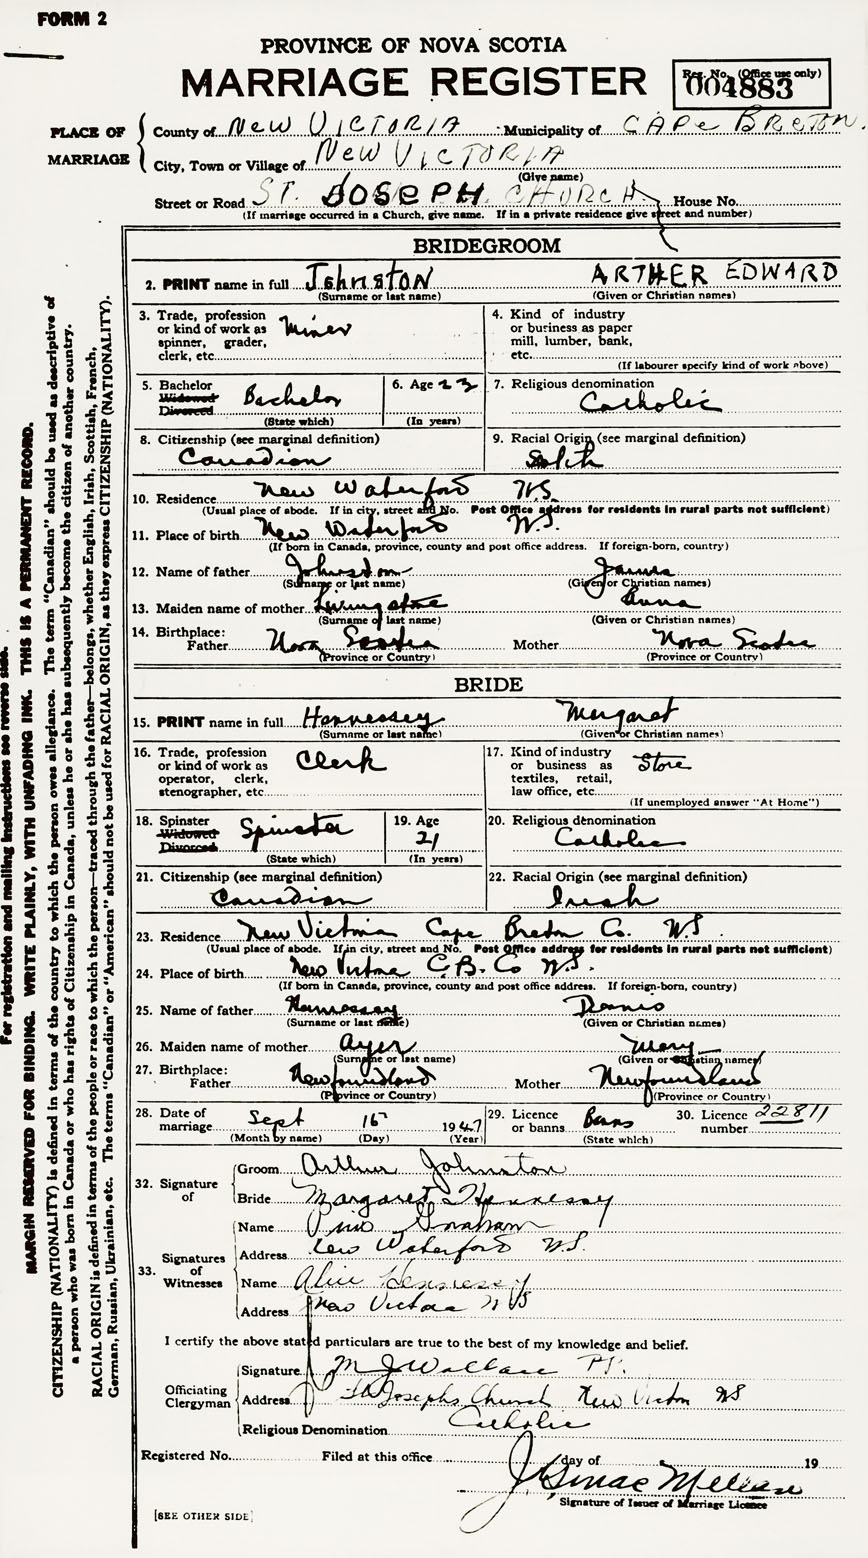 FORM 2
PROVINCE OF NOVA SCOTIA
MARRIAGE REGISTER
Reg. No. (Office use only)
004883
PLACE OF MARRIAGE
County of New VICTORIA Municipality of CAPe BReTON.
City, Town or Village of New VICTORIA
(Give name)
Street or Road ST. JOSEPH CHURCH House No.
(If marriage occurred in a Church, give name. If in a private residence give street and number)
BRIDEGROOM
2. PRINT name in full Johnston ARTHER EDWARD
(Surname or last name) (Given or Christian names)
3. Trade, profession or kind of work as spinner, grader, clerk, etc. Miner
4. Kind of industry or business as paper mill, lumber, bank, etc.
(If labourer specify kind of work above)
5. Bachelor Widowed Divorced Bachelor
(State which)
6. Age 23
(In years)
7. Religious denomination
Catholic
8. Citizenship (see marginal definition)
Canadian
9. Racial Origin (see marginal definition)
10. Residence New Waterford N.S.
(Usual place of abode. If in city, street and No. Post Office address for residents in rural parts not sufficient)
11. Place of birth New Waterford N.S.
(If born in Canada, province, county and post office address. If foreign-born, country)
12. Name of father Johnston James
(Surname or last name) (Given or Christian names)
13. Maiden name of mother Livingstone Anna
(Surname or last name) (Given or Christian names)
14. Birthplace:
Father Nova Scotia Mother Nova Scotia
(Province or Country) (Province or Country)
BRIDE
15. PRINT name in full Hennessey Margaret
(Surname or last name) (Given or Christian names)
16. Trade, profession or kind of work as operator, clerk, stenographer, etc. Clerk
17. Kind of industry or business as textiles, retail, law office, etc. Store
(If unemployed answer "At Home")
18. Spinster Widowed Divorced Spinster
(State which)
19. Age
21
(In years)
20. Religious denomination
Catholic
21. Citizenship (see marginal definition)
Canadian
22. Racial Origin (see marginal definition)
Irish
23. Residence New Victoria Cape Breton Co. N.S.
(Usual place of abode. If in city, street and No. Post Office address for residents in rural parts not sufficient)
24. Place of birth New Victoria C.B. Co N.S.
(If born in Canada, province, county and post office address. If foreign-born, country)
25. Name of father Hennessey Dennis
(Surname or last name) (Given or Christian names)
26. Maiden name of mother Ayer Mary
(Surname or last name) (Given or Christian names)
27. Birthplace:
Father Newfoundland Mother Newfoundland
(Province or Country) (Province or Country)
28. Date of marriage Sept 15 1947
(Month by name) (Day) (Year)
29. Licence or banns Banns
(State which)
30. Licence number 22811
32. Signature of
Groom Arthur Johnston
Bride Margaret Hennessy
33. Signatures of Witnesses
Name Graham
Address New Waterford N.S.
Name Alice Hennessy
Address New Victoria N S
I certify the above stated particulars are true to the best of my knowledge and belief.
Officiating Clergyman
Signature M J Wallace P.P.
Address St Josephs Church New Victoria NS
Religious Denomination Catholic
Registered No. Filed at this office day of 19
Signature of Issuer of Marriage Licence
[SEE OTHER SIDE]
For registration and mailing instructions see reverse side.
MARGIN RESERVED FOR BINDING. WRITE PLAINLY, WITH UNFADING INK. THIS IS A PERMANENT RECORD.
CITIZENSHIP (NATIONALITY) is defined in terms of the country to which the person owes allegiance. The term "Canadian" should be used as descriptive of
a person who was born in Canada or who has rights of Citizenship in Canada, unless he or she has subsequently become the citizen of another country.
RACIAL ORIGIN is defined in terms of the people or race to which the person—traced through the father—belongs, whether English, Irish, Scottish, French,
German, Russian, Ukrainian, etc. The terms "Canadian" or "American" should not be used for RACIAL ORIGIN, as they express CITIZENSHIP (NATIONALITY).